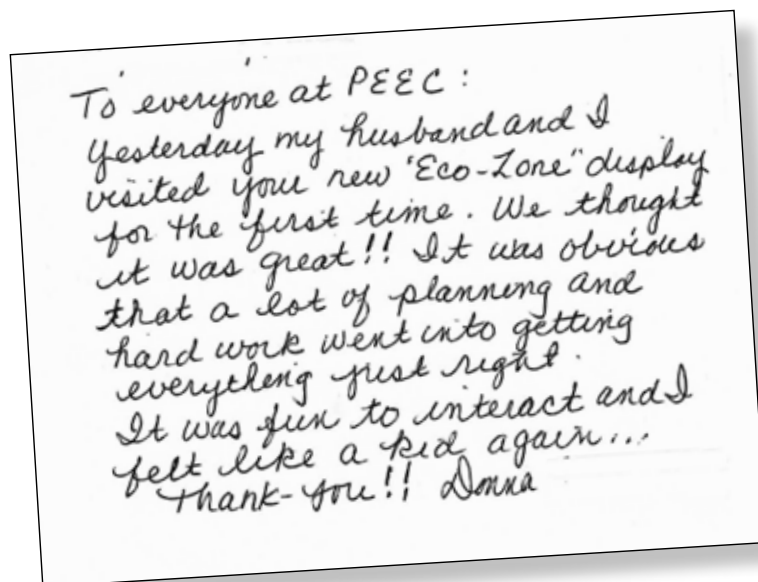 To everyone at PEEC:
Yesterday my husband and I
visited your new "Eco-Zone" display
for the first time. We thought
it was great!! It was obvious
that a lot of planning and
hard work went into getting
everything just right.
It was fun to interact and I
felt like a kid again...
Thank-you!! Donna